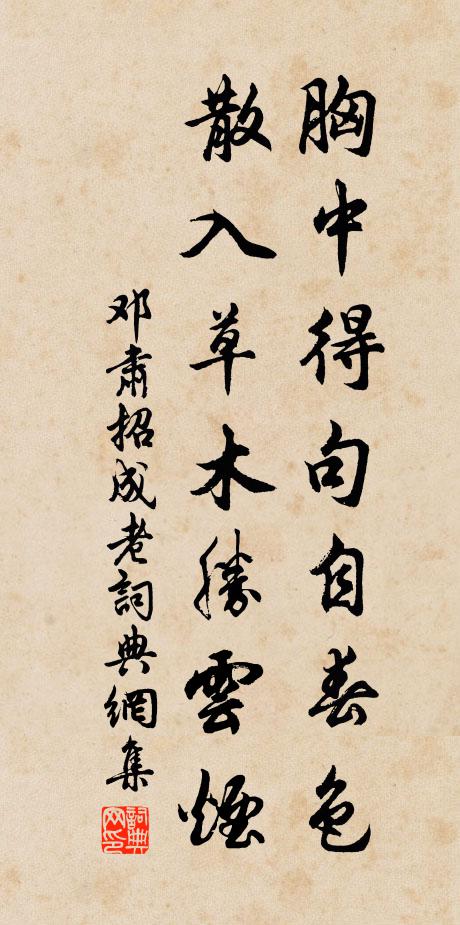 胸中得句自春色
散入草木勝雲煙
邓肅招成老詞典網集
詞典网印